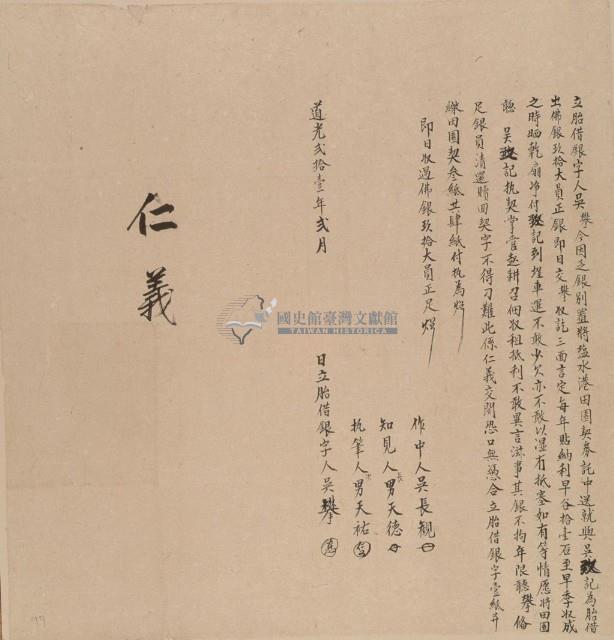 立胎借銀字人吳攀今因乏銀別置將塩水港田園契券託中送就與吳玫記為胎借
出佛銀玖拾大員正銀即日交攀收訖三面言定每年貼納利早谷拾壹石至早季收成
之時晒乾扇净付玫記到埕車運不敢少欠亦不敢以湿有抵塞如有等情愿將田園
聽吳玫記执契掌管起耕召佃收租抵利不敢異言滋事其銀不拘年限聽攀俻
足銀員清還贖回契字不得刁難此係仁義交関恐口無憑合立胎借銀字壹紙并
繳田園契叁紙共肆紙付执為炤
即日收過佛銀玖拾大員正足炤
作中人吳長観
知見人長男天德
执筆人次男天祐
道光弍拾壹年弍月 日立胎借銀字人吳攀
仁義
國史館臺灣文獻館
TAIWAN HISTORICA